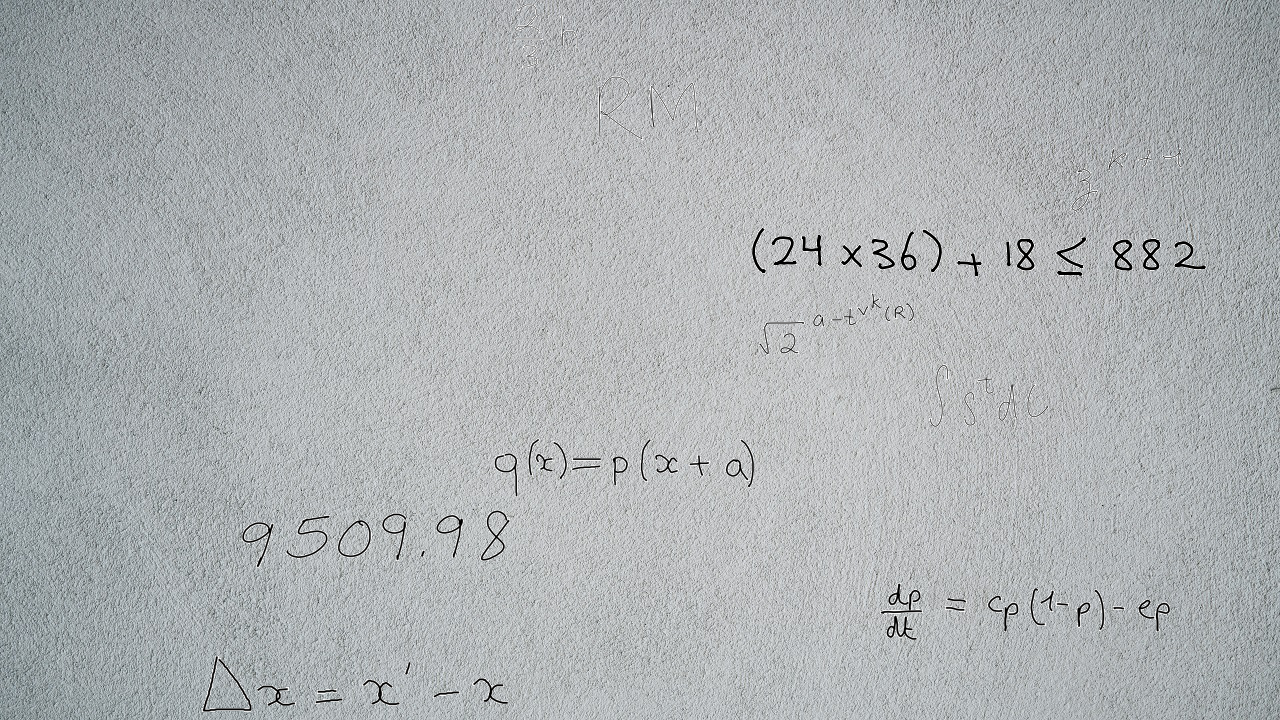 RM
(24 x 36) + 18 ≤ 882
√2 a-t√k(R)
∫ s^t d
q(x) = p(x + a)
9509.98
dp/dt = cp(1-p) - ep
Δx = x' - x